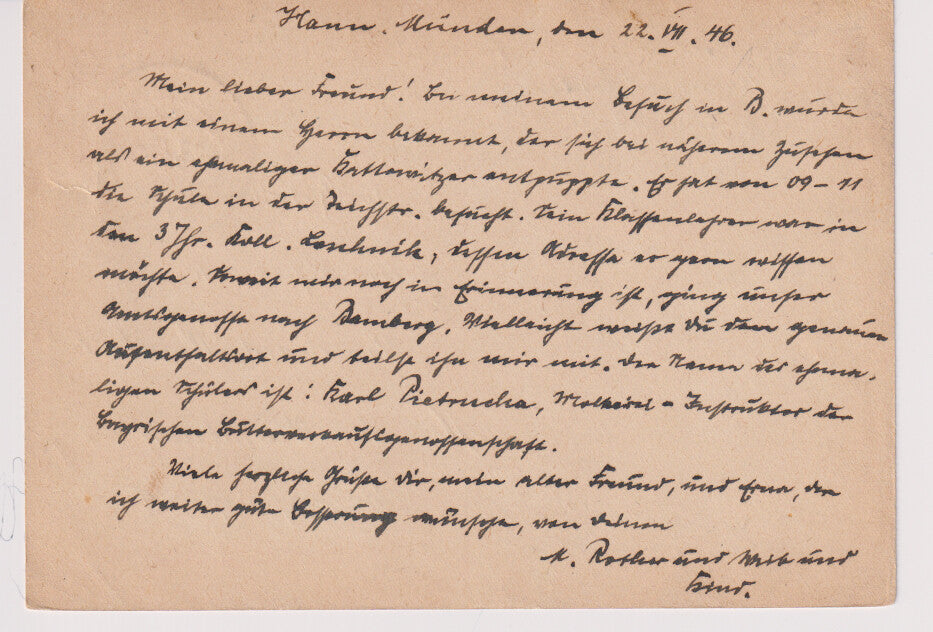 Hann. Münden, den 22. VII. 46.
Mein lieber Freund! Bei meinem Besuch in B. wurde
ich mit einem Herrn bekannt, der sich bei näherem Zusehen
als ein ehemaliger Kattowitzer entpuppte. Er hat von 09–11
die Schule in der Teichstr. besucht. Sein Klassenlehrer war in
den 3 Jhr. Koll. , dessen Adresse er gern wissen
möchte. Soweit mir noch in Erinnerung ist, ging unser
Amtsgenosse nach Bamberg. Vielleicht weißt du den genauen
Aufenthaltsort und teilst ihn mir mit. Der Name des ehema-
ligen Schülers ist: Karl Pietrucha, Molkerei-Instruktor der
Bayrischen Butterverkaufsgenossenschaft.
Viele herzliche Grüße dir, mein alter Freund, und Erna, der
ich weiter gute Besserung wünsche, von deinem
M. Rother und Weib und
Kind.